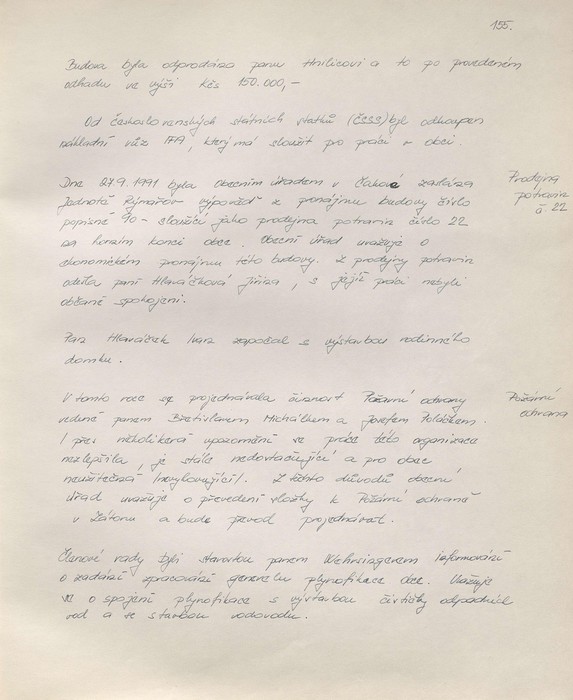 155.
Budova byla odprodána panu Hnilicovi a to po provedeném
odhadu ve výši Kčs 150.000,-
Od Československých státních statků (ČSSS) byl odkoupen
nákladní vůz IFA, který má sloužit pro práci v obci.
Dne 27.9. 1991 byla Obecním úřadem v Čakové zaslána
Prodejna
Jednotě Rýmařov výpověď z pronájmu budovy číslo
potravin
popisné 90 - sloužící jako prodejna potravin číslo 22
č 22
na horním konci obce. Obecní úřad uvažuje o
ekonomickém pronájmu této budovy. Z prodejny potravin
odešla paní Hlaváčková Jiřina, s jejíž prací nebyli
občané spokojeni.
Pan Hlaváček Ivan započal s výstavbou rodinného
domku.
V tomto roce se projednávala činnost Požární ochrany
Požární
vedené panem Břetislavem Michálkem a Josefem Poláškem.
ochrana
I přes několikerá upozornění se práce této organizace
nezlepšila, je stále nedostačující a pro obec
neužitečná /nevyhovující/. Z těchto důvodů obecní
úřad uvažuje o převedení složky k Požární ochraně
v Zátoru a bude převod projednávat.
Členové rady byli starostou panem Wehnsingerem informováni
o zadání zpracování generelu plynofikace obce. Uvažuje
se o spojení plynofikace s výstavbou čističky odpadních
vod a se stavbou vodovodu.